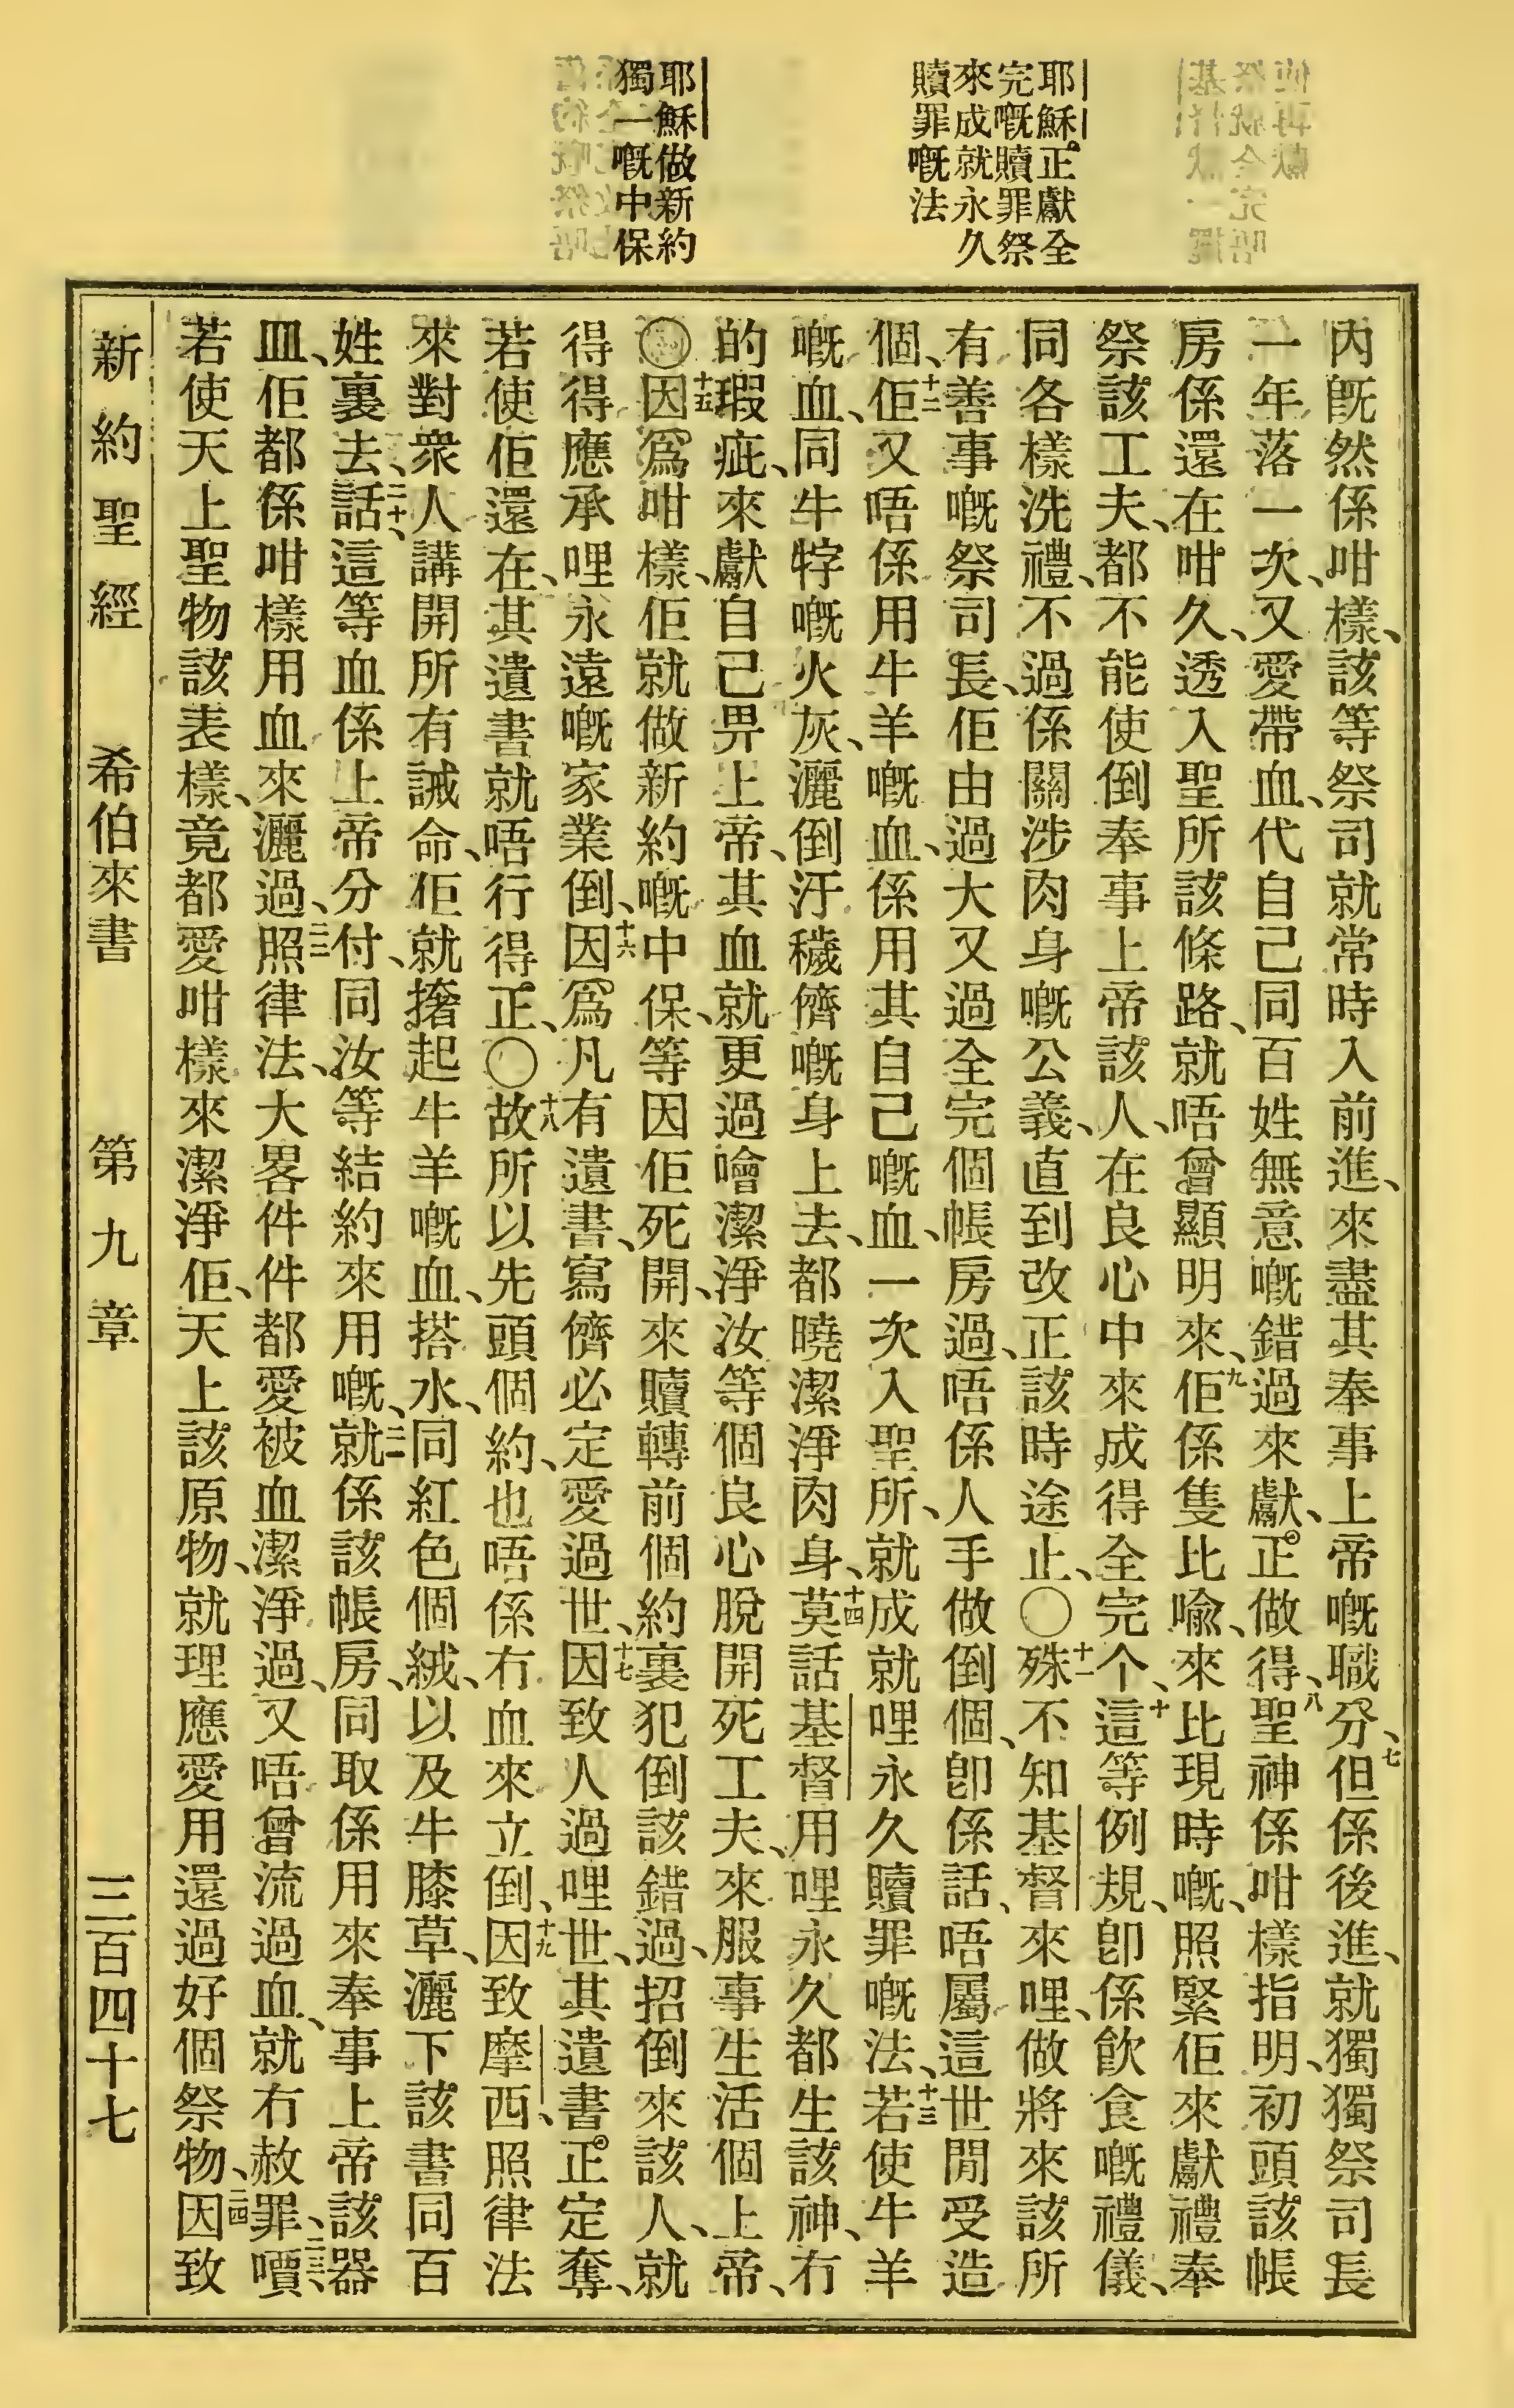 耶穌正獻全
完嘅贖罪祭
來成就永久
贖罪嘅法
耶穌做新約
獨一嘅中保
內既然係咁樣、該等祭司就常時入前進、來盡其奉事上帝嘅職分、七但係後進、就獨獨祭司長
一年落一次、又愛帶血、代自己同百姓無意嘅錯過來獻、正做得、八聖神係咁樣指明、初頭該帳
房係還在咁久、透入聖所該條路、就唔曾顯明來、九佢係隻比喻、來比現時嘅、照緊佢來獻禮奉
祭該工夫、都不能使倒奉事上帝該人、在良心中來成得全完个、十這等例規、卽係飲食嘅禮儀、
同各樣洗禮、不過係關涉肉身嘅公義、直到改正該時途止、〇十一殊不知基督來哩、做將來該所
有善事嘅祭司長、佢由過大又過全完個帳房過、唔係人手做倒個、卽係話、唔屬這世閒受造
個、十二佢又唔係用牛羊嘅血、係用其自己嘅血、一次入聖所、就成就哩永久贖罪嘅法、十三若使牛羊
嘅血、同牛牸嘅火灰、灑倒汙穢儕嘅身上去、都曉潔淨肉身、十四莫話基督用哩永久都生該神、冇
的瑕疵、來獻自己畀上帝、其血就更過噲潔淨汝等個良心脫開死工夫、來服事生活個上帝、
〇十五因爲咁樣、佢就做新約嘅中保、等因佢死開、來贖轉前個約裏犯倒該錯過、招倒來該人、就
得得應承哩永遠嘅家業倒、十六因爲凡有遺書、寫儕必定愛過世、十七因致人過哩世、其遺書正定奪、
若使佢還在、其遺書就唔行得正、〇十八故所以先頭個約、也唔係冇血來立倒、十九因致摩西、照律法
來對衆人講開所有誡命、佢就撦起牛羊嘅血、搭水、同紅色個絨、以及牛膝草、灑下該書同百
姓裏去、二十、話這等血係上帝分付、同汝等結約來用嘅、二一就係該帳房、同取係用來奉事上帝該器
皿、佢都係咁樣用血來灑過、二二照律法、大畧件件都愛被血潔淨過、又唔曾流過血、就冇赦罪、二三、嘪
若使天上聖物該表樣、竟都愛咁樣來潔淨佢、天上該原物、就理應愛用還過好個祭物、二四因致
新約聖經　希伯來書　第九章　三百四十七